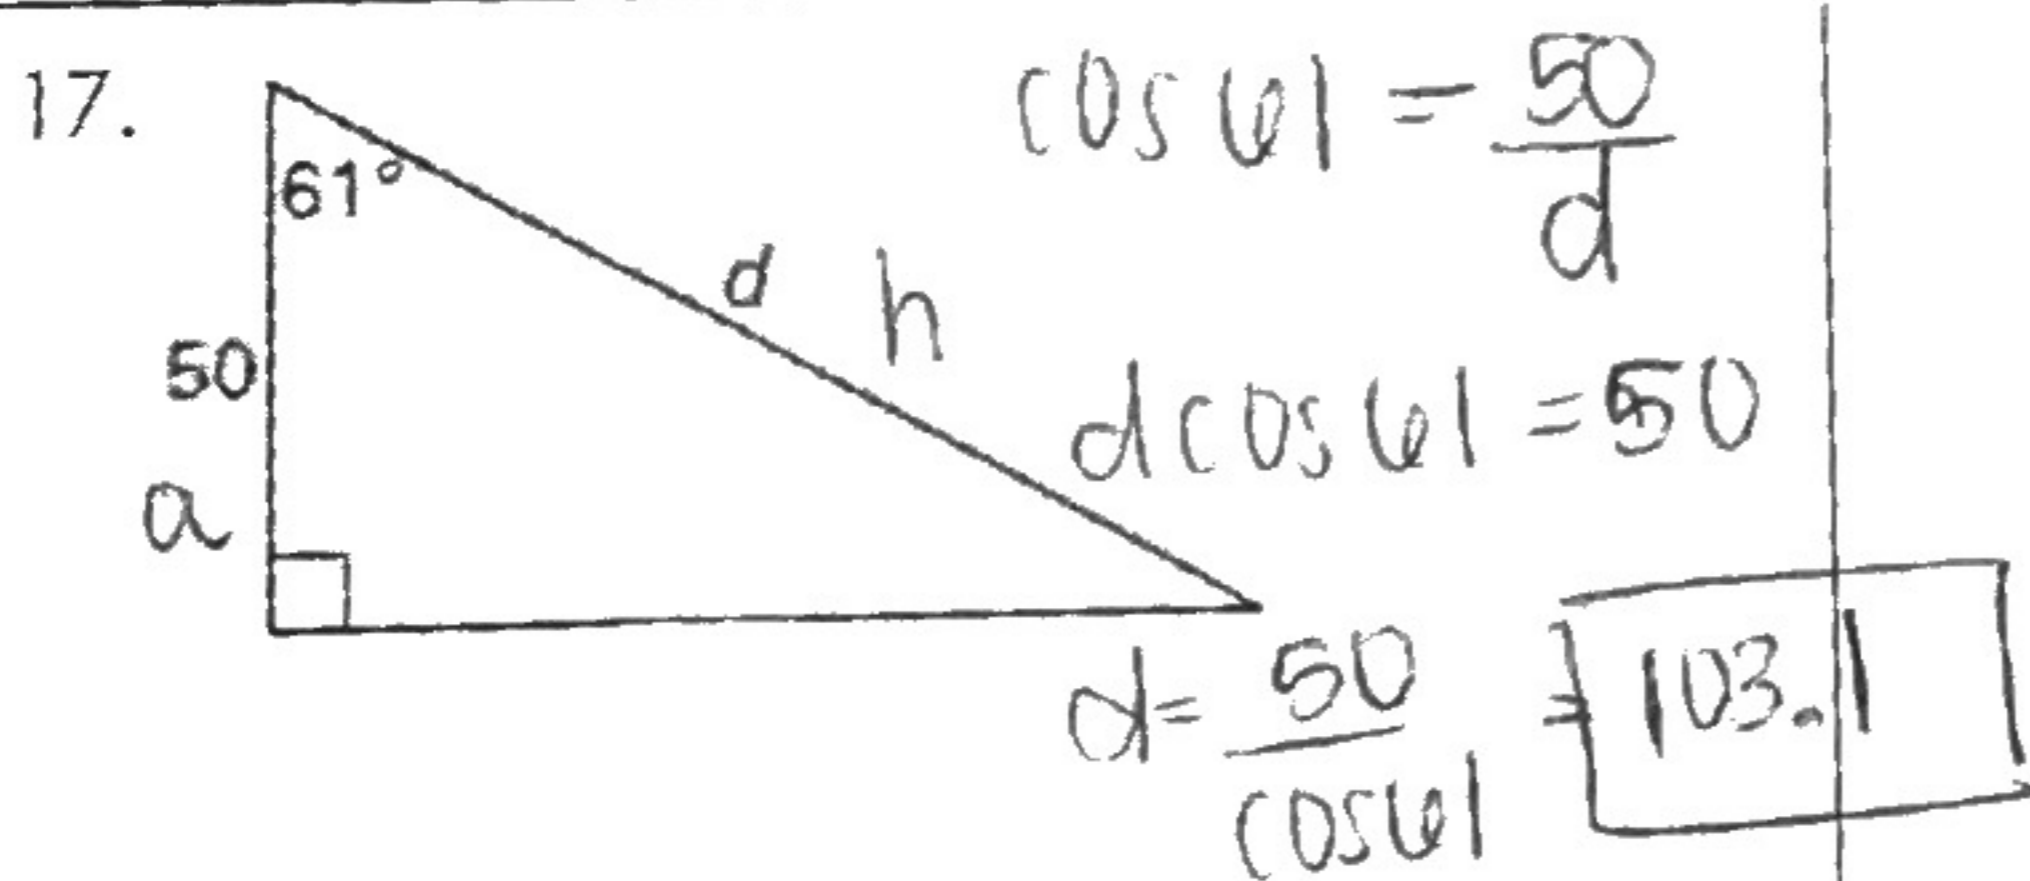 17.
61°
d
h
50
a
cos 61 = 50/d
d cos 61 = 50
d = 50/cos 61 = 103.1